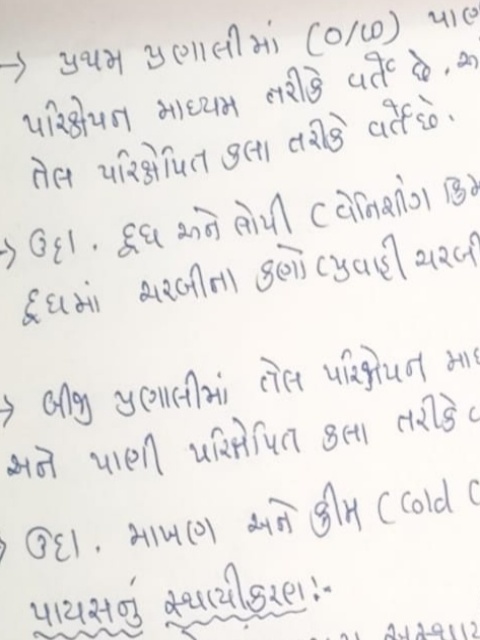 → પ્રથમ પ્રણાલીમાં (O/W) પાણ
પરિક્ષેપન માધ્યમ તરીકે વર્તે છે. અ
તેલ પરિક્ષેપિત કલા તરીકે વર્તે છે.
→ ઉદા. દૂધ અને લોપી (વેનિશીંગ ક્રિમ
દૂધમાં ચરબીના કણો (પ્રવાહી ચરબી
→ બીજી પ્રણાલીમાં તેલ પરિક્ષેપન માધ
અને પાણી પરિક્ષેપિત કલા તરીકે વ
→ ઉદા. માખણ અને ક્રીમ (Cold C
પાયસનું સ્થાયીકરણ:-